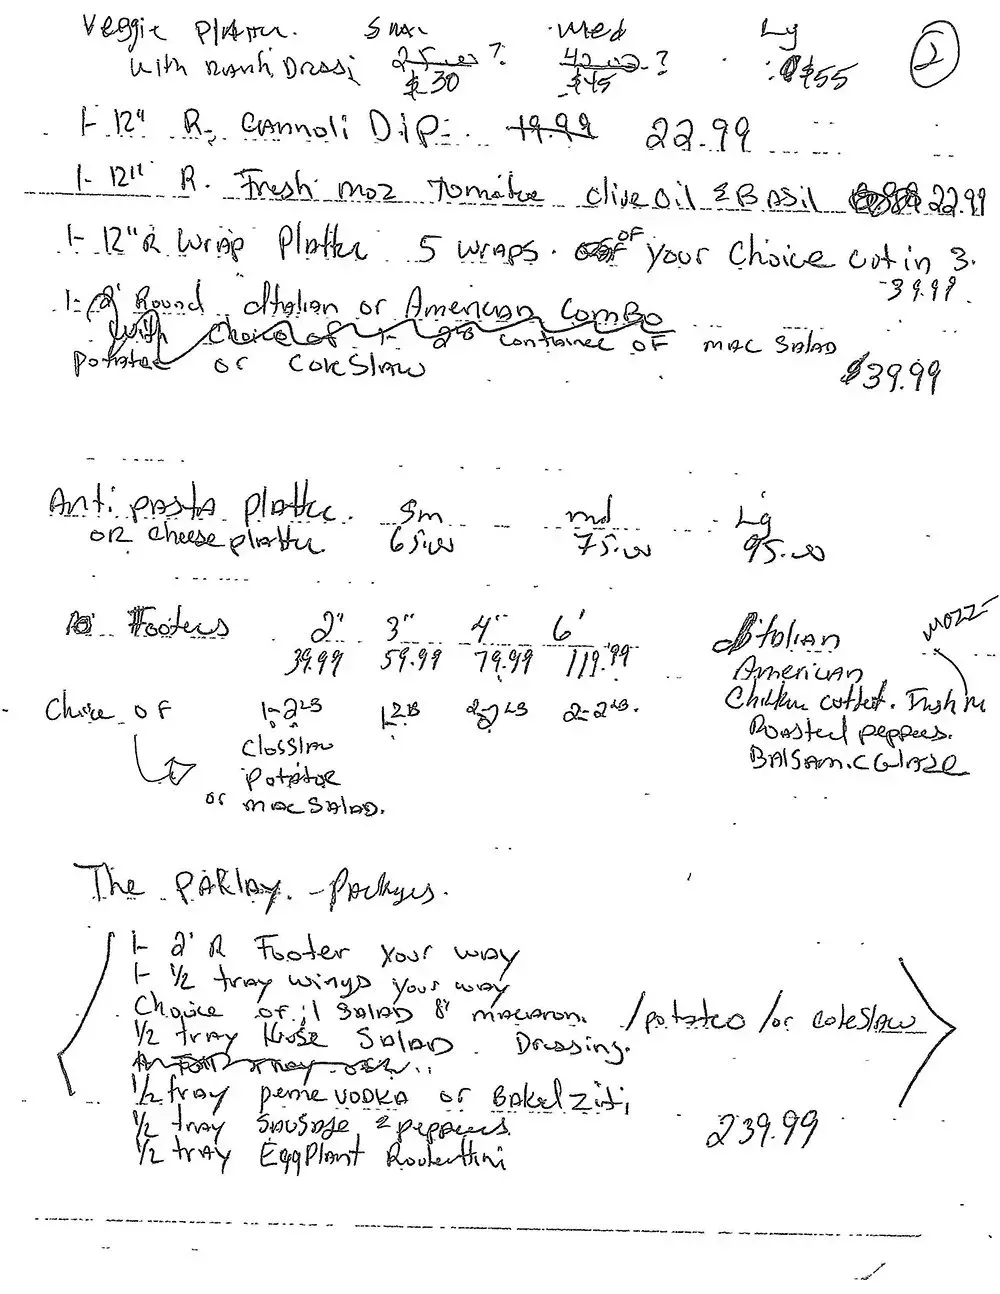 Veggie Platter. Sma Med Lg 2
with Ranh Dressi 25.00 ? 42.00 ? $55
$30 $45
1- 12" R. Cannoli Dip 19.99 22.99
1- 12" R. Fresh moz Tomatoe olive oil & Basil 22.99
1- 12" R Wrap Platter 5 wraps. OF your Choice cut in 3.
39.99
1- 2' Round Italian or American Combo
with Choice of 1- 2LB container OF mac Salad
potatoe or coleslaw $39.99
Anti pasta platter. Sm md Lg
or cheese platter 65.00 75.00 95.00
Footers 2" 3" 4" 6' Italian mozz
39.99 59.99 79.99 119.99 American
Choice OF 1-2LB 1 2LB 2-2LB 2-2LB. Chicken cutlet. Fresh m
Closslaw Roasted peppers.
potatoe Balsamic Glaze
or mac Salad.
The Parlay. - Packges.
1- 2' R Footer your way
1- 1/2 tray wings your way
Choice of 1 Salad macaroni /potatoe /or coleslaw
1/2 tray House Salad Dressing.
1/2 tray penne vodka or Baked ziti
1/2 tray Sausage & peppers 239.99
1/2 tray Eggplant Roolettini